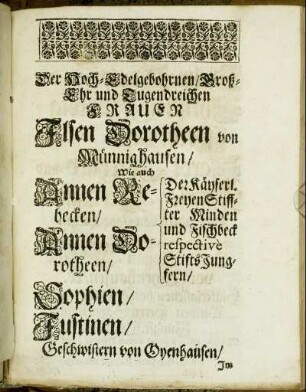 Der Hoch-Edelgebohrnen/Groß-
Ehr und Tugendreichen
FRAUEN
Ilsen Dorotheen von
Münnighausen/
Wie auch
Annen Re-
becken/
Annen Do-
rotheen/
Der Käyserl.
Freyen Stiff-
ter Minden
und Fischbeck
respective
Stiffts Jung-
fern/
Sophien/
Justinen/
Geschwistern von Oyenhausen/
Im